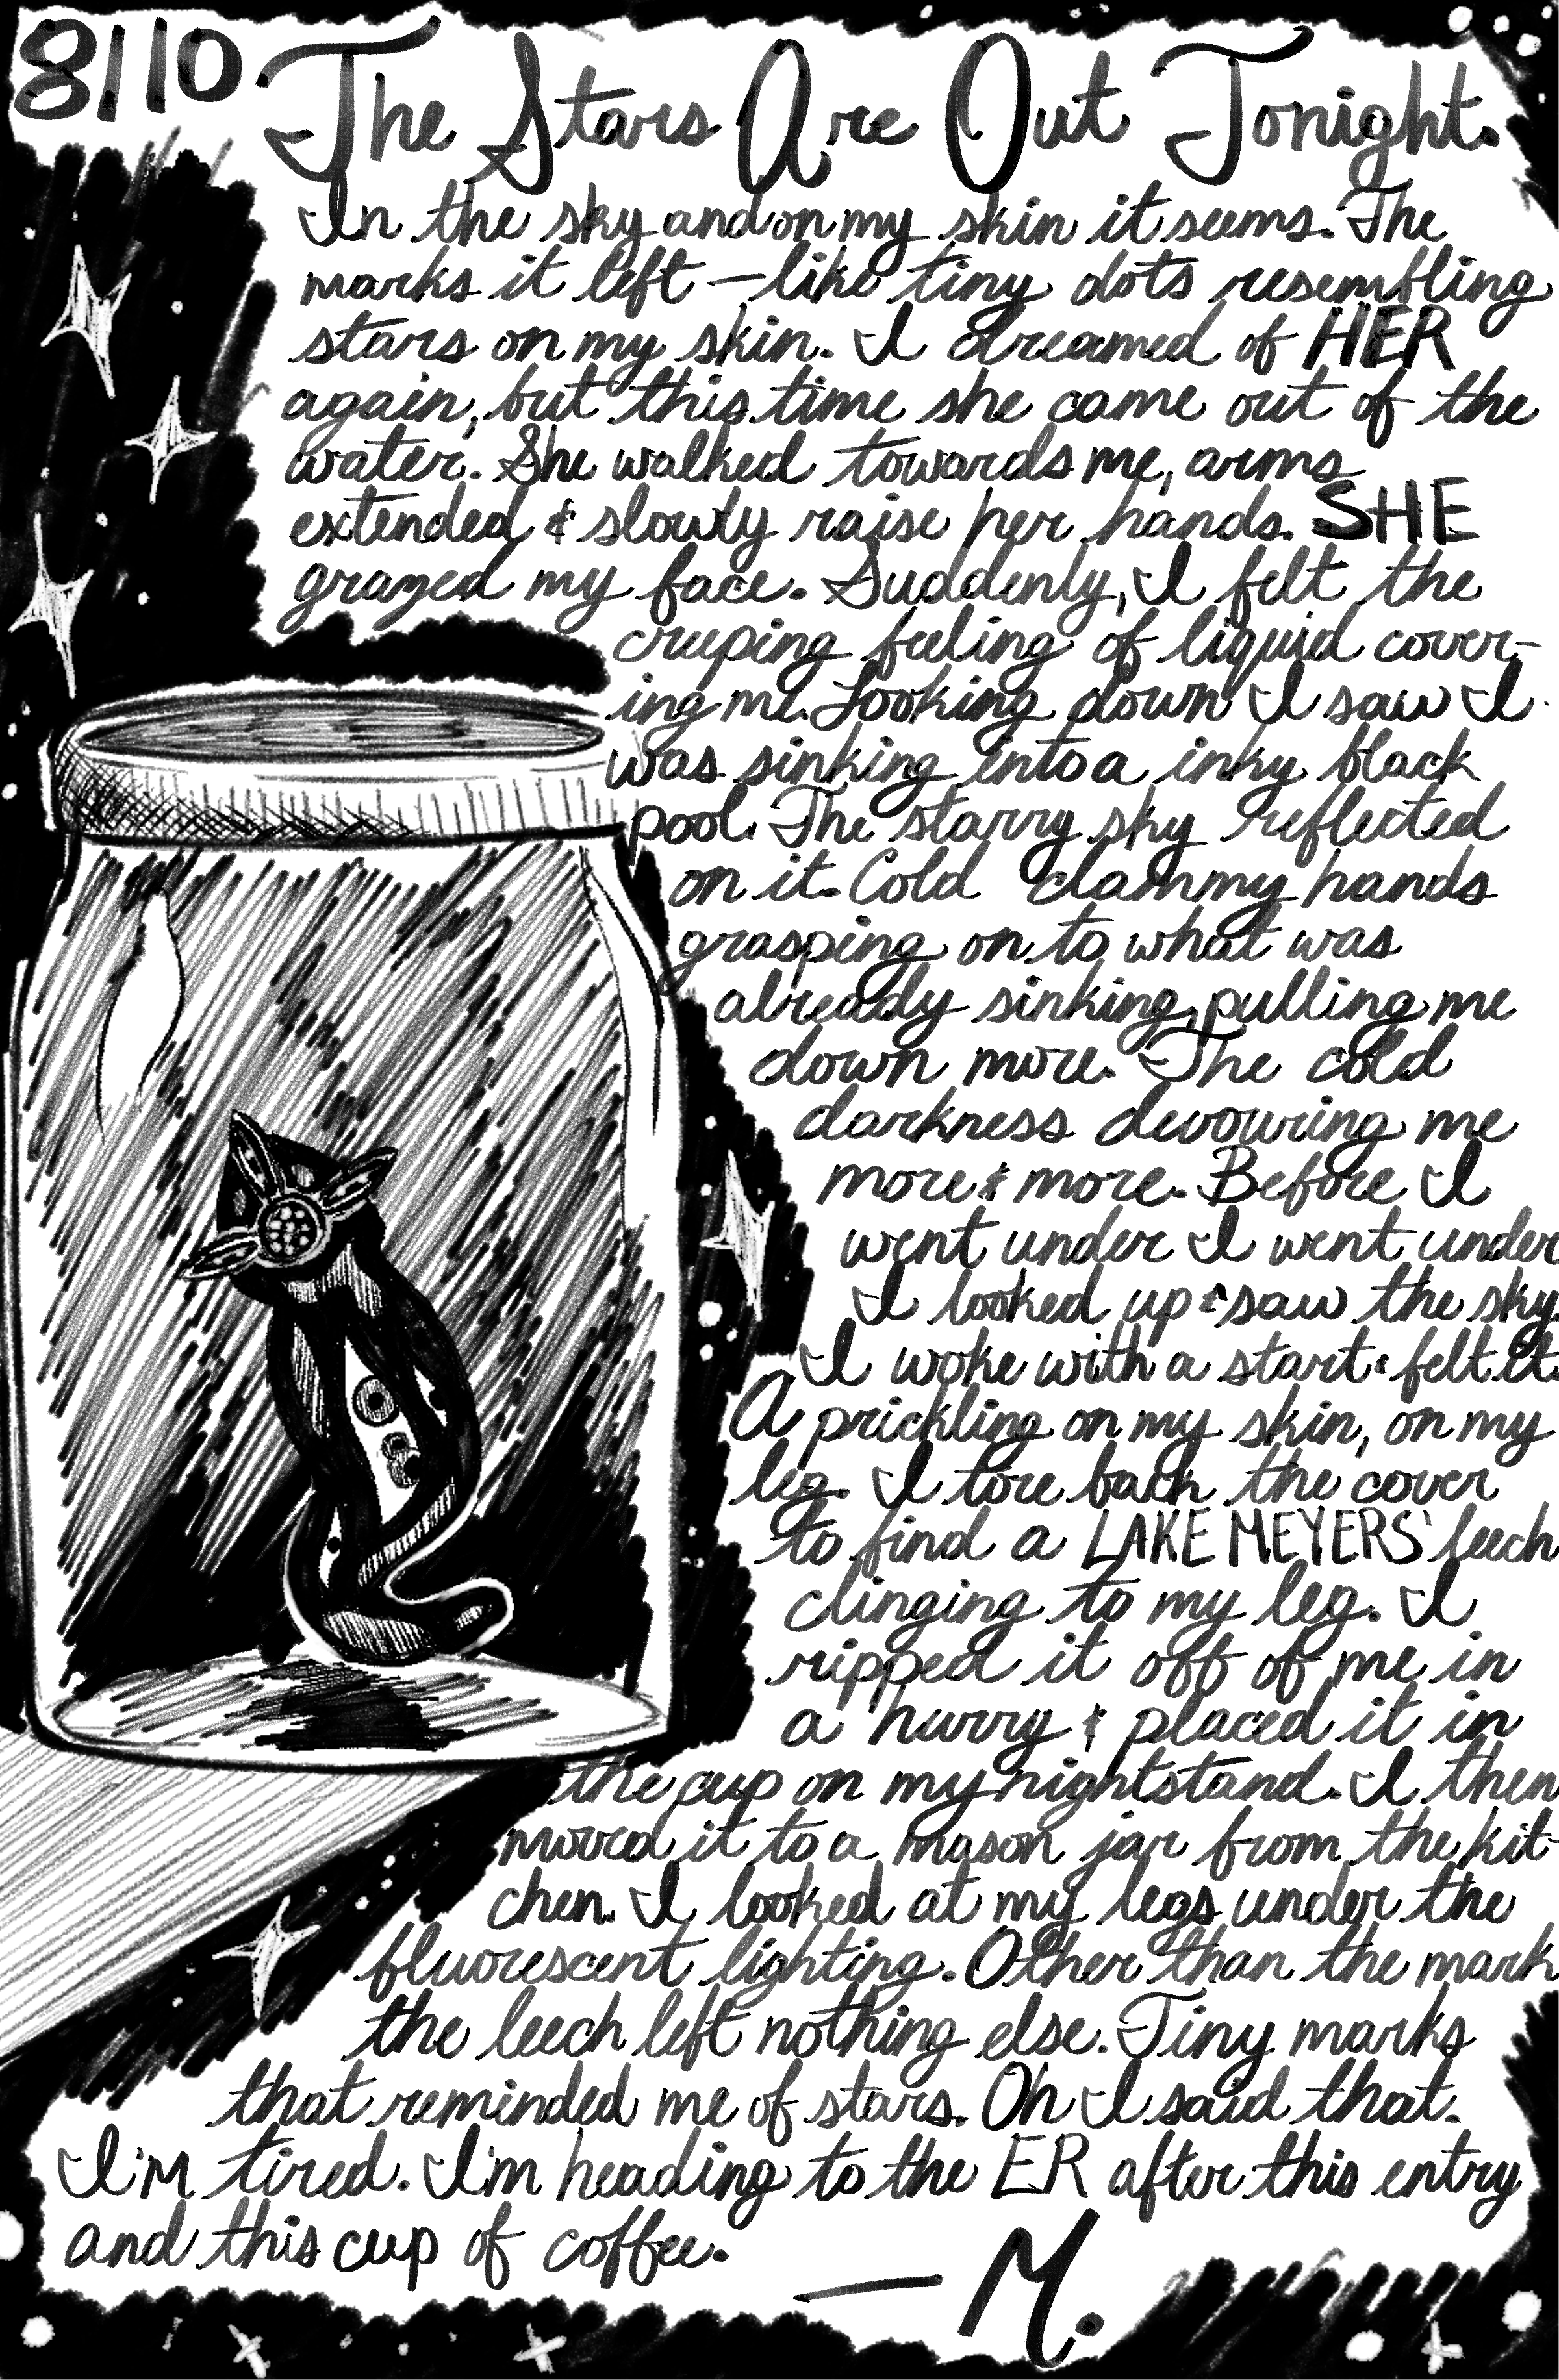 8/10 The Stars Are Out Tonight.
In the sky and on my skin it seems. The
marks it left - like tiny dots resembling
stars on my skin. I dreamed of HER
again, but this time she came out of the
water. She walked towards me, arms
extended & slowly raise her hands. SHE
grazed my face. Suddenly, I felt the
creeping feeling of liquid cover-
ing me. Looking down I saw I
was sinking into a inky black
pool. The starry sky reflected
on it. Cold clammy hands
grasping on to what was
already sinking, pulling me
down more. The cold
darkness devouring me
more & more. Before I
went under I went under
I looked up & saw the sky.
I woke with a start & felt it.
A prickling on my skin, on my
leg. I tore back the cover
to find a LAKE MEYERS' leech
clinging to my leg. I
ripped it off of me in
a hurry & placed it in
the cup on my nightstand. I then
moved it to a mason jar from the kit-
chen. I looked at my legs under the
fluorescent lighting. Other than the mark
the leech left nothing else. Tiny marks
that reminded me of stars. Oh I said that.
I'm tired. I'm heading to the ER after this entry
and this cup of coffee.
— M.